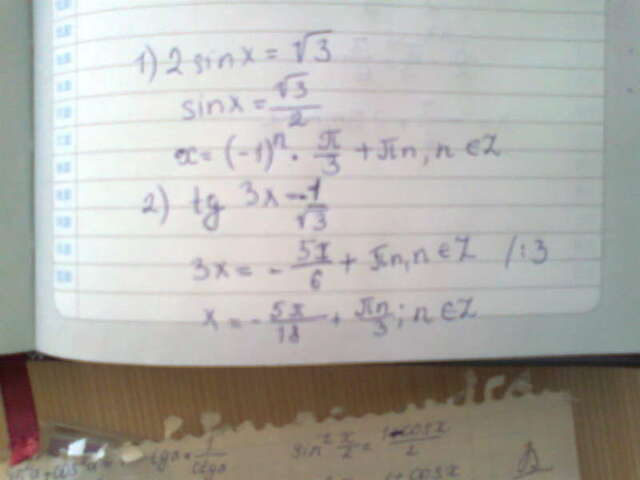 1) 2 sin x = √3
sin x = √3/2
x = (-1)ⁿ · π/3 + πn, n ∈ Z
2) tg 3x = -1/√3
3x = - 5π/6 + πn, n ∈ Z /:3
x = - 5π/18 + πn/3; n ∈ Z
sin² x/2 = 1-cos x/2